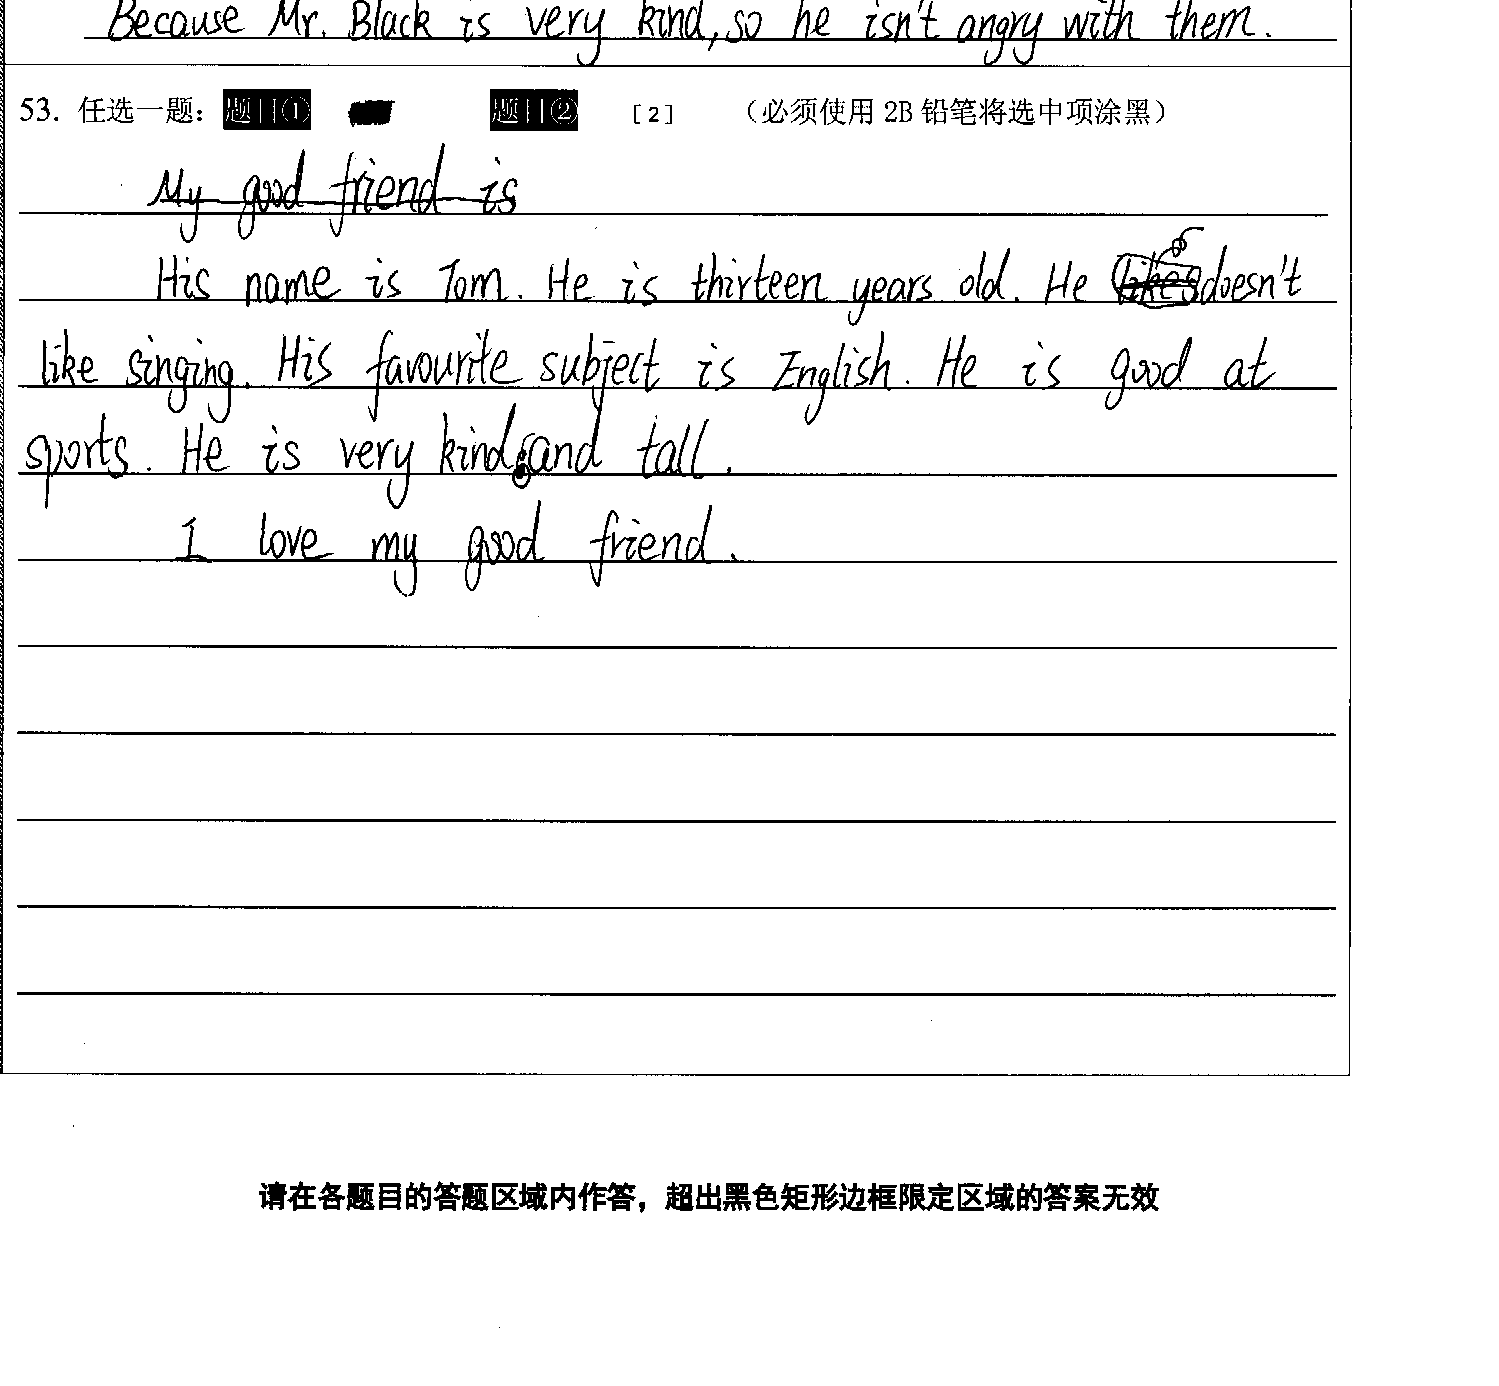 Because Mr. Black is very kind, so he isn't angry with them.
53. 任选一题： 题目① 题目② [2] （必须使用 2B 铅笔将选中项涂黑）
My good friend is
His name is Tom. He is thirteen years old. He likes doesn't
like singing. His favourite subject is English. He is good at
sports. He is very kind and tall.
I love my good friend.
请在各题目的答题区域内作答，超出黑色矩形边框限定区域的答案无效